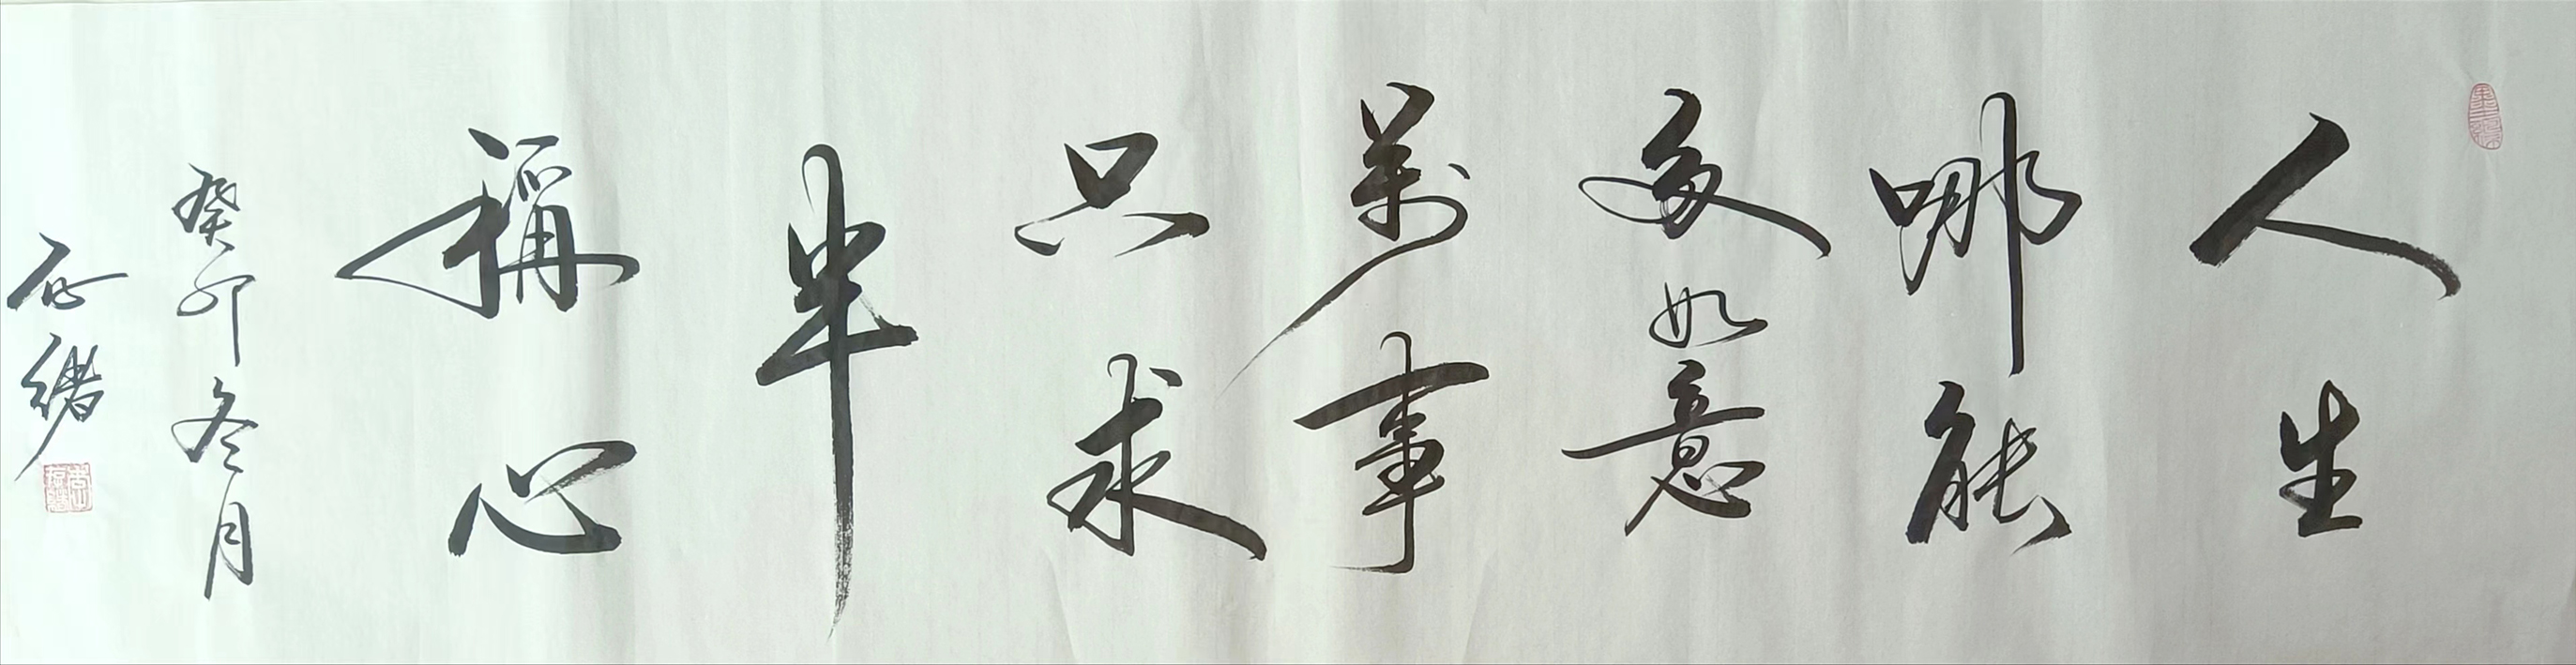 人生
哪能
多如意
萬事
只求
半
稱心
癸卯冬月